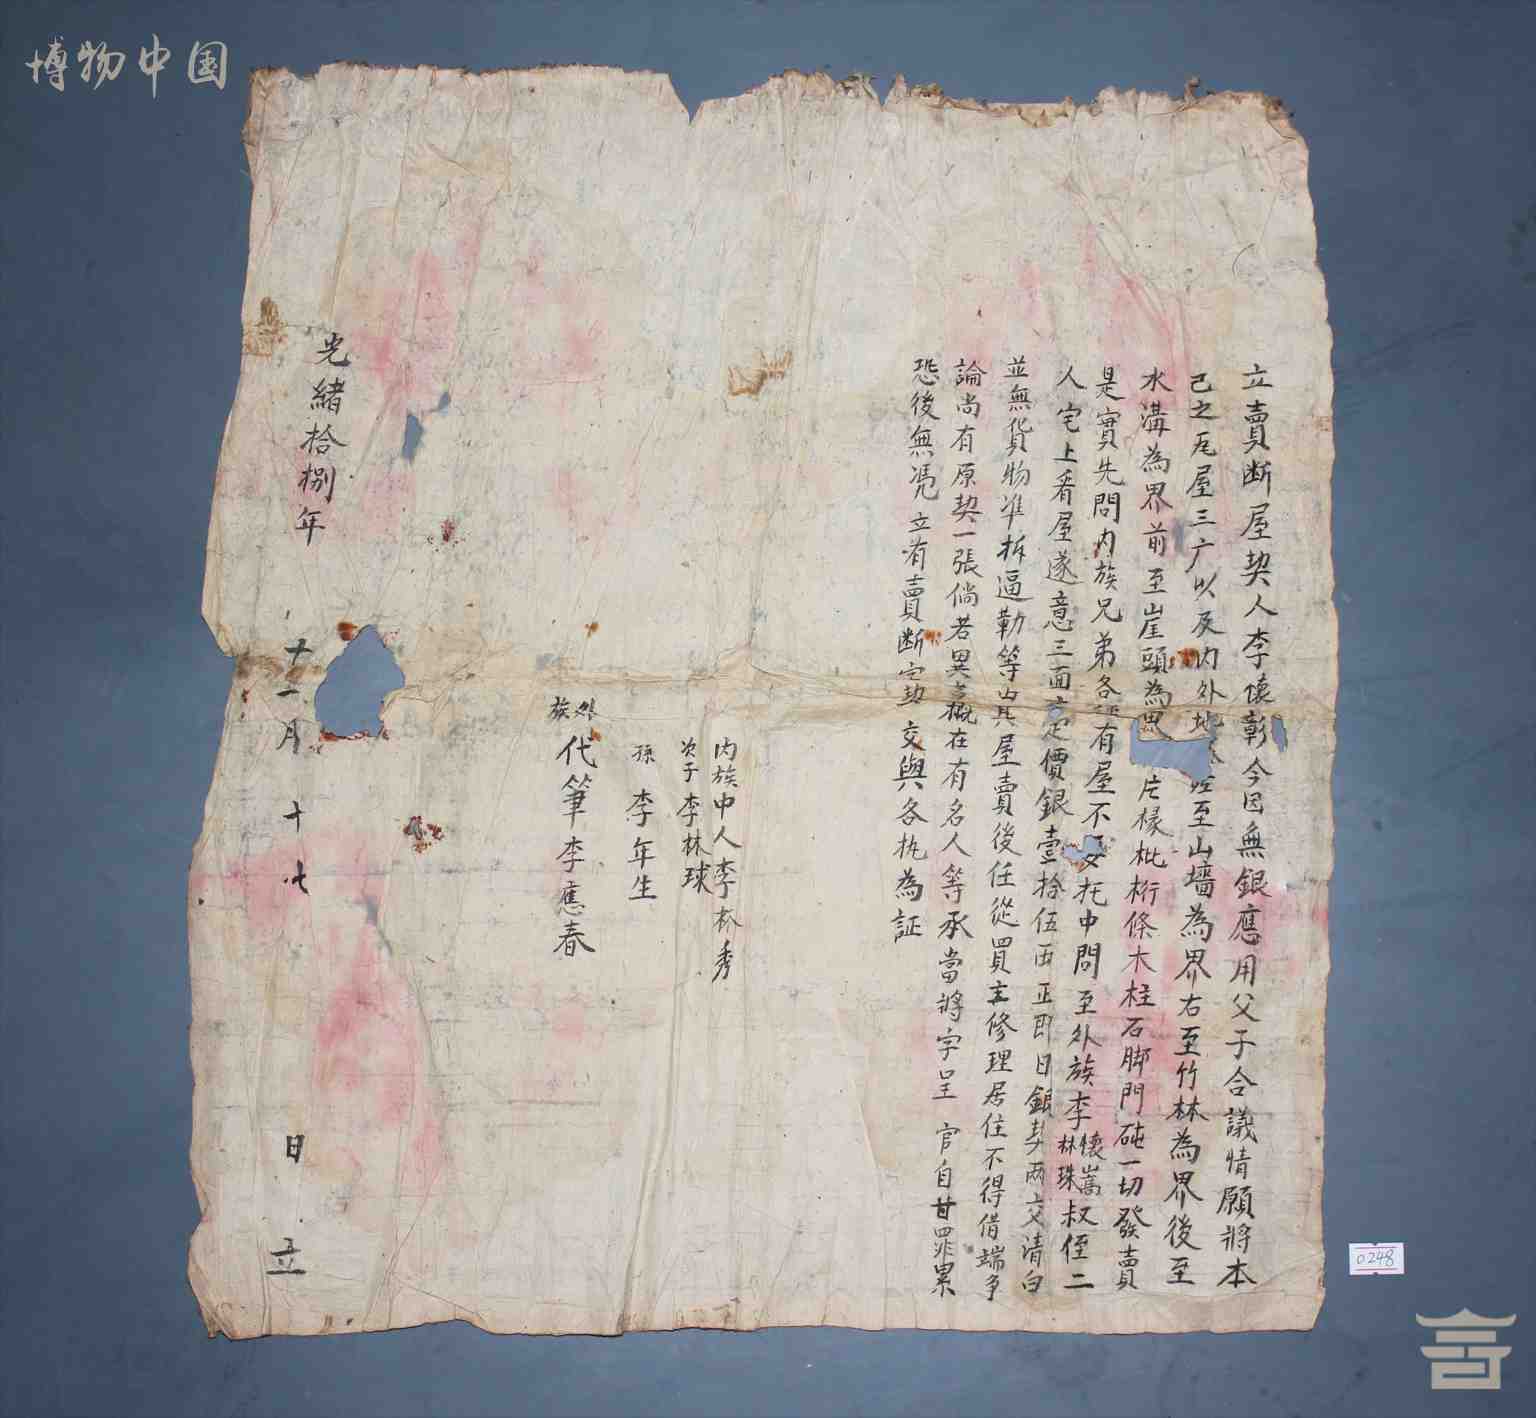 博物中国
立賣断屋契人李懷彰今因無銀應用父子合議情願將本
己之瓦屋三广以及内外地至山墙為界右至竹林為界後至
水溝為界前至崖頭為界片椽枇桁條木柱石脚門砘一切發賣
是實先問内族兄弟各有屋不要托中問至外族李懷嵩林珠叔侄二
人宅上看屋遂意三面定價銀壹拾伍両正即日銀契両交清白
並無貨物准拆逼勒等其屋賣後任從買主修理居住不得借端争
論尚有原契一張倘若異在有名人等承當將字呈 官自甘罪累
恐後無憑立有賣断契交與各执為証
内族中人李林秀
次子李林球
孫 李年生
外族 代筆李應春
光緒拾捌年 十一月 十七 日 立
0248